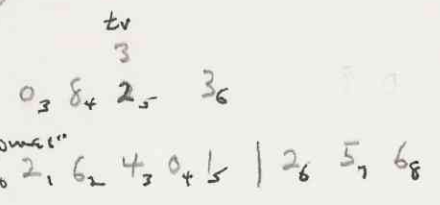 tv
3
0₃ 8₄ 2₅ 3₆
2₁ 6₂ 4₃ 0₄ 1₅ | 2₆ 5₇ 6₈